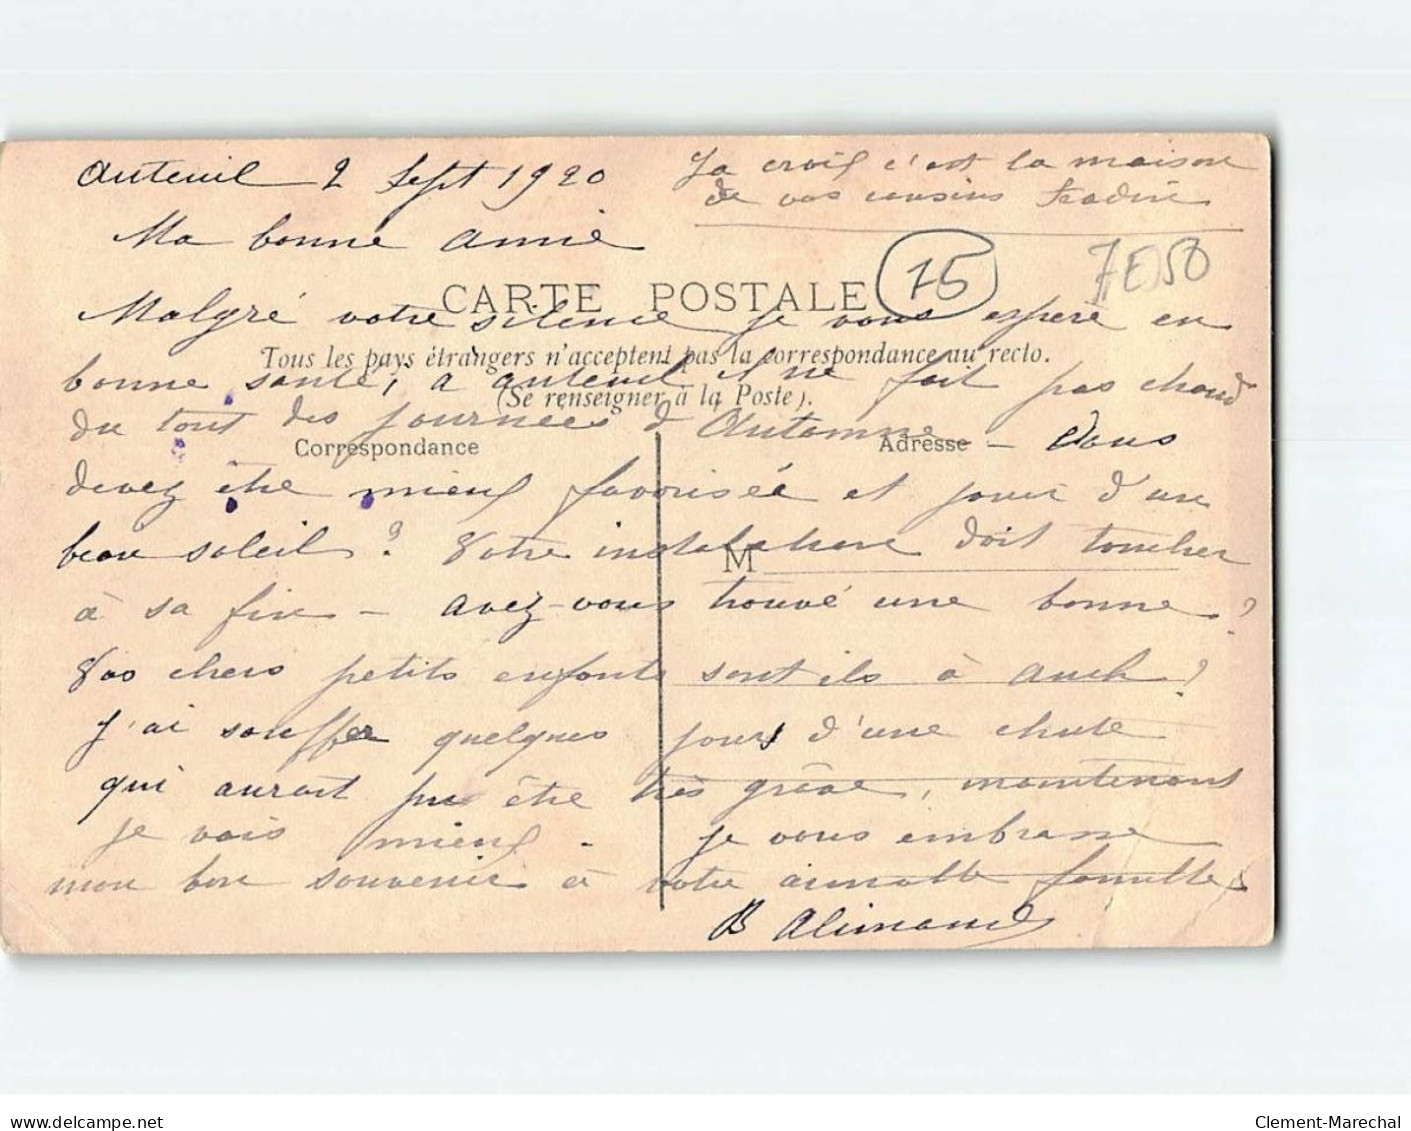 Auteuil 2 Sept 1920
Ja crois c'est la maison
de vos cousins
Ma bonne amie
75
7E50
CARTE POSTALE
Malgré votre silence je vous espère en
Tous les pays étrangers n'acceptent pas la correspondance au recto.
bonne santé, a auteuil il ne fait pas chaud
(Se renseigner à la Poste).
du tout des journées d'Automne - Vous
Correspondance
Adresse
devez être mieux favorisée et jouir d'un
beau soleil ? Votre installation doit toucher
M
à sa fin - avez-vous trouvé une bonne ?
Vos chers petits enfants sont ils à Auch ?
J'ai souffer quelques jours d'une chute
qui aurait pu être très grave, maintenant
je vais mieux. je vous embrasse
mon bon souvenir à votre aimable famille
B Alimand
www.delcampe.net
Clement-Marechal